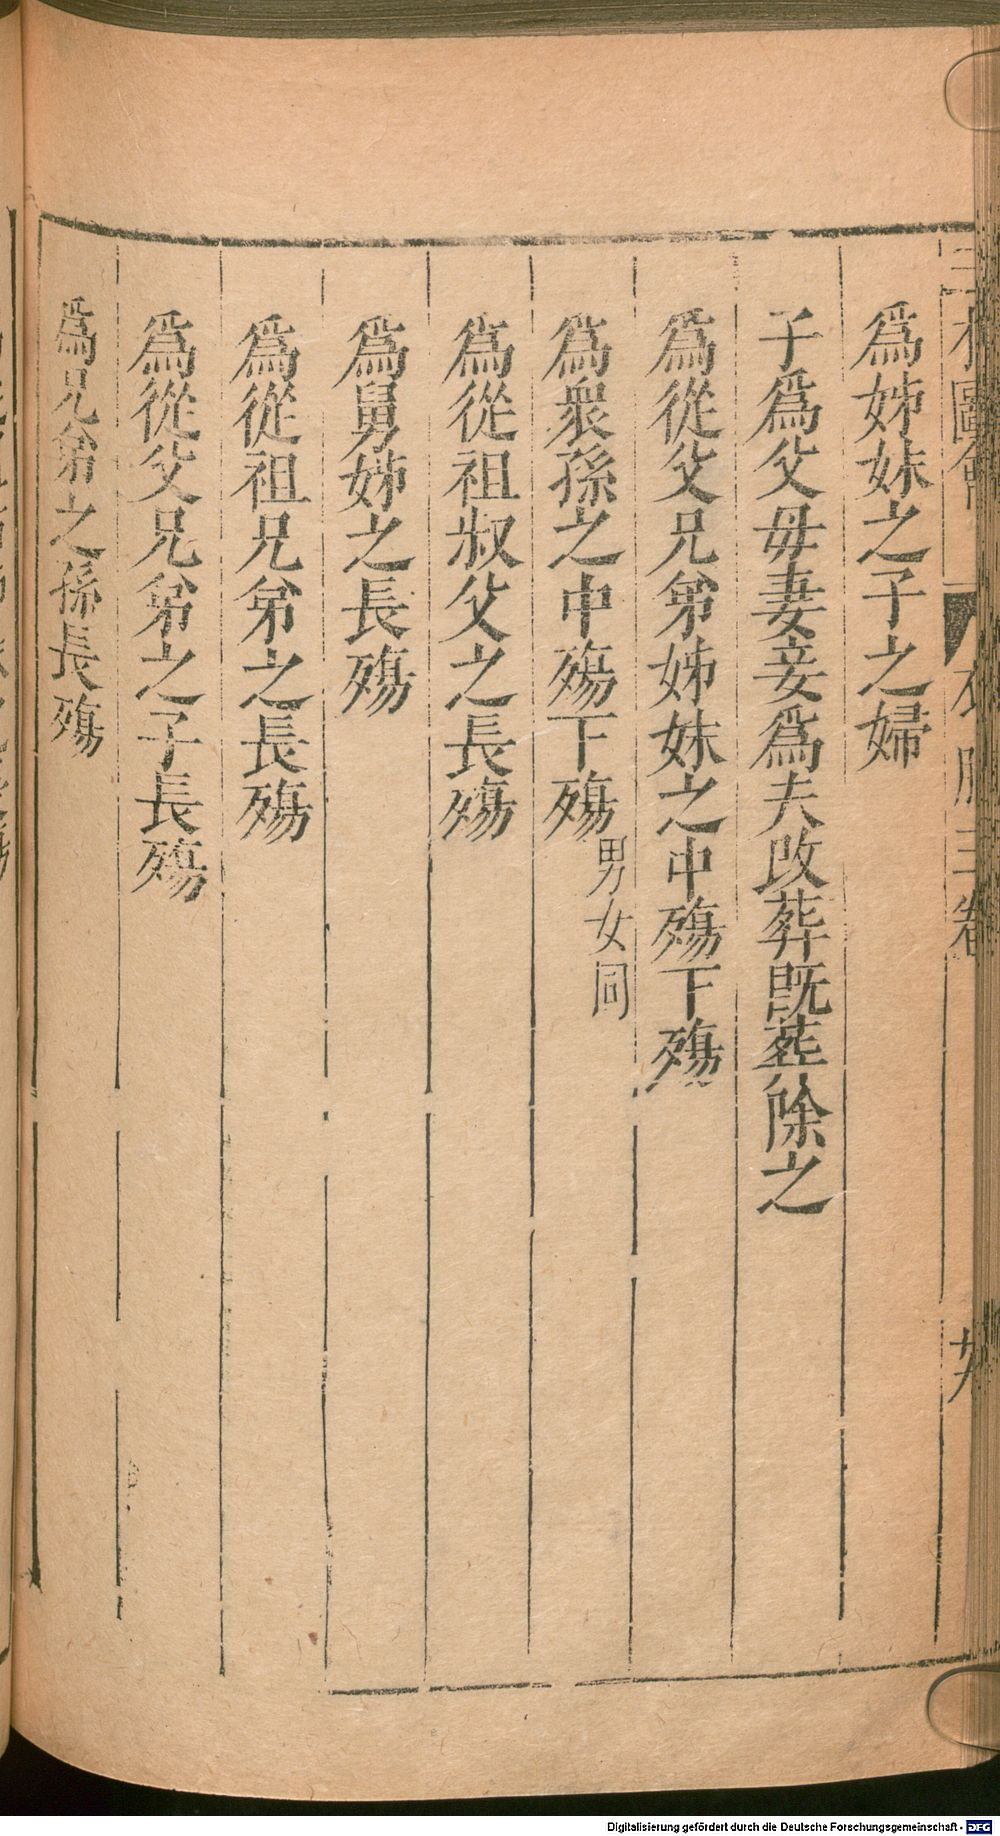 三才圖會 衣服三卷 廿六
爲姊妹之子之婦
子爲父毋妻妾爲夫改葬既葬除之
爲從父兄弟姊妹之中殤下殤
爲衆孫之中殤下殤男女同
爲從祖叔父之長殤
爲舅姊之長殤
爲從祖兄弟之長殤
爲從父兄弟之子長殤
爲兄弟之孫長殤
Digitalisierung gefördert durch die Deutsche Forschungsgemeinschaft - DFG